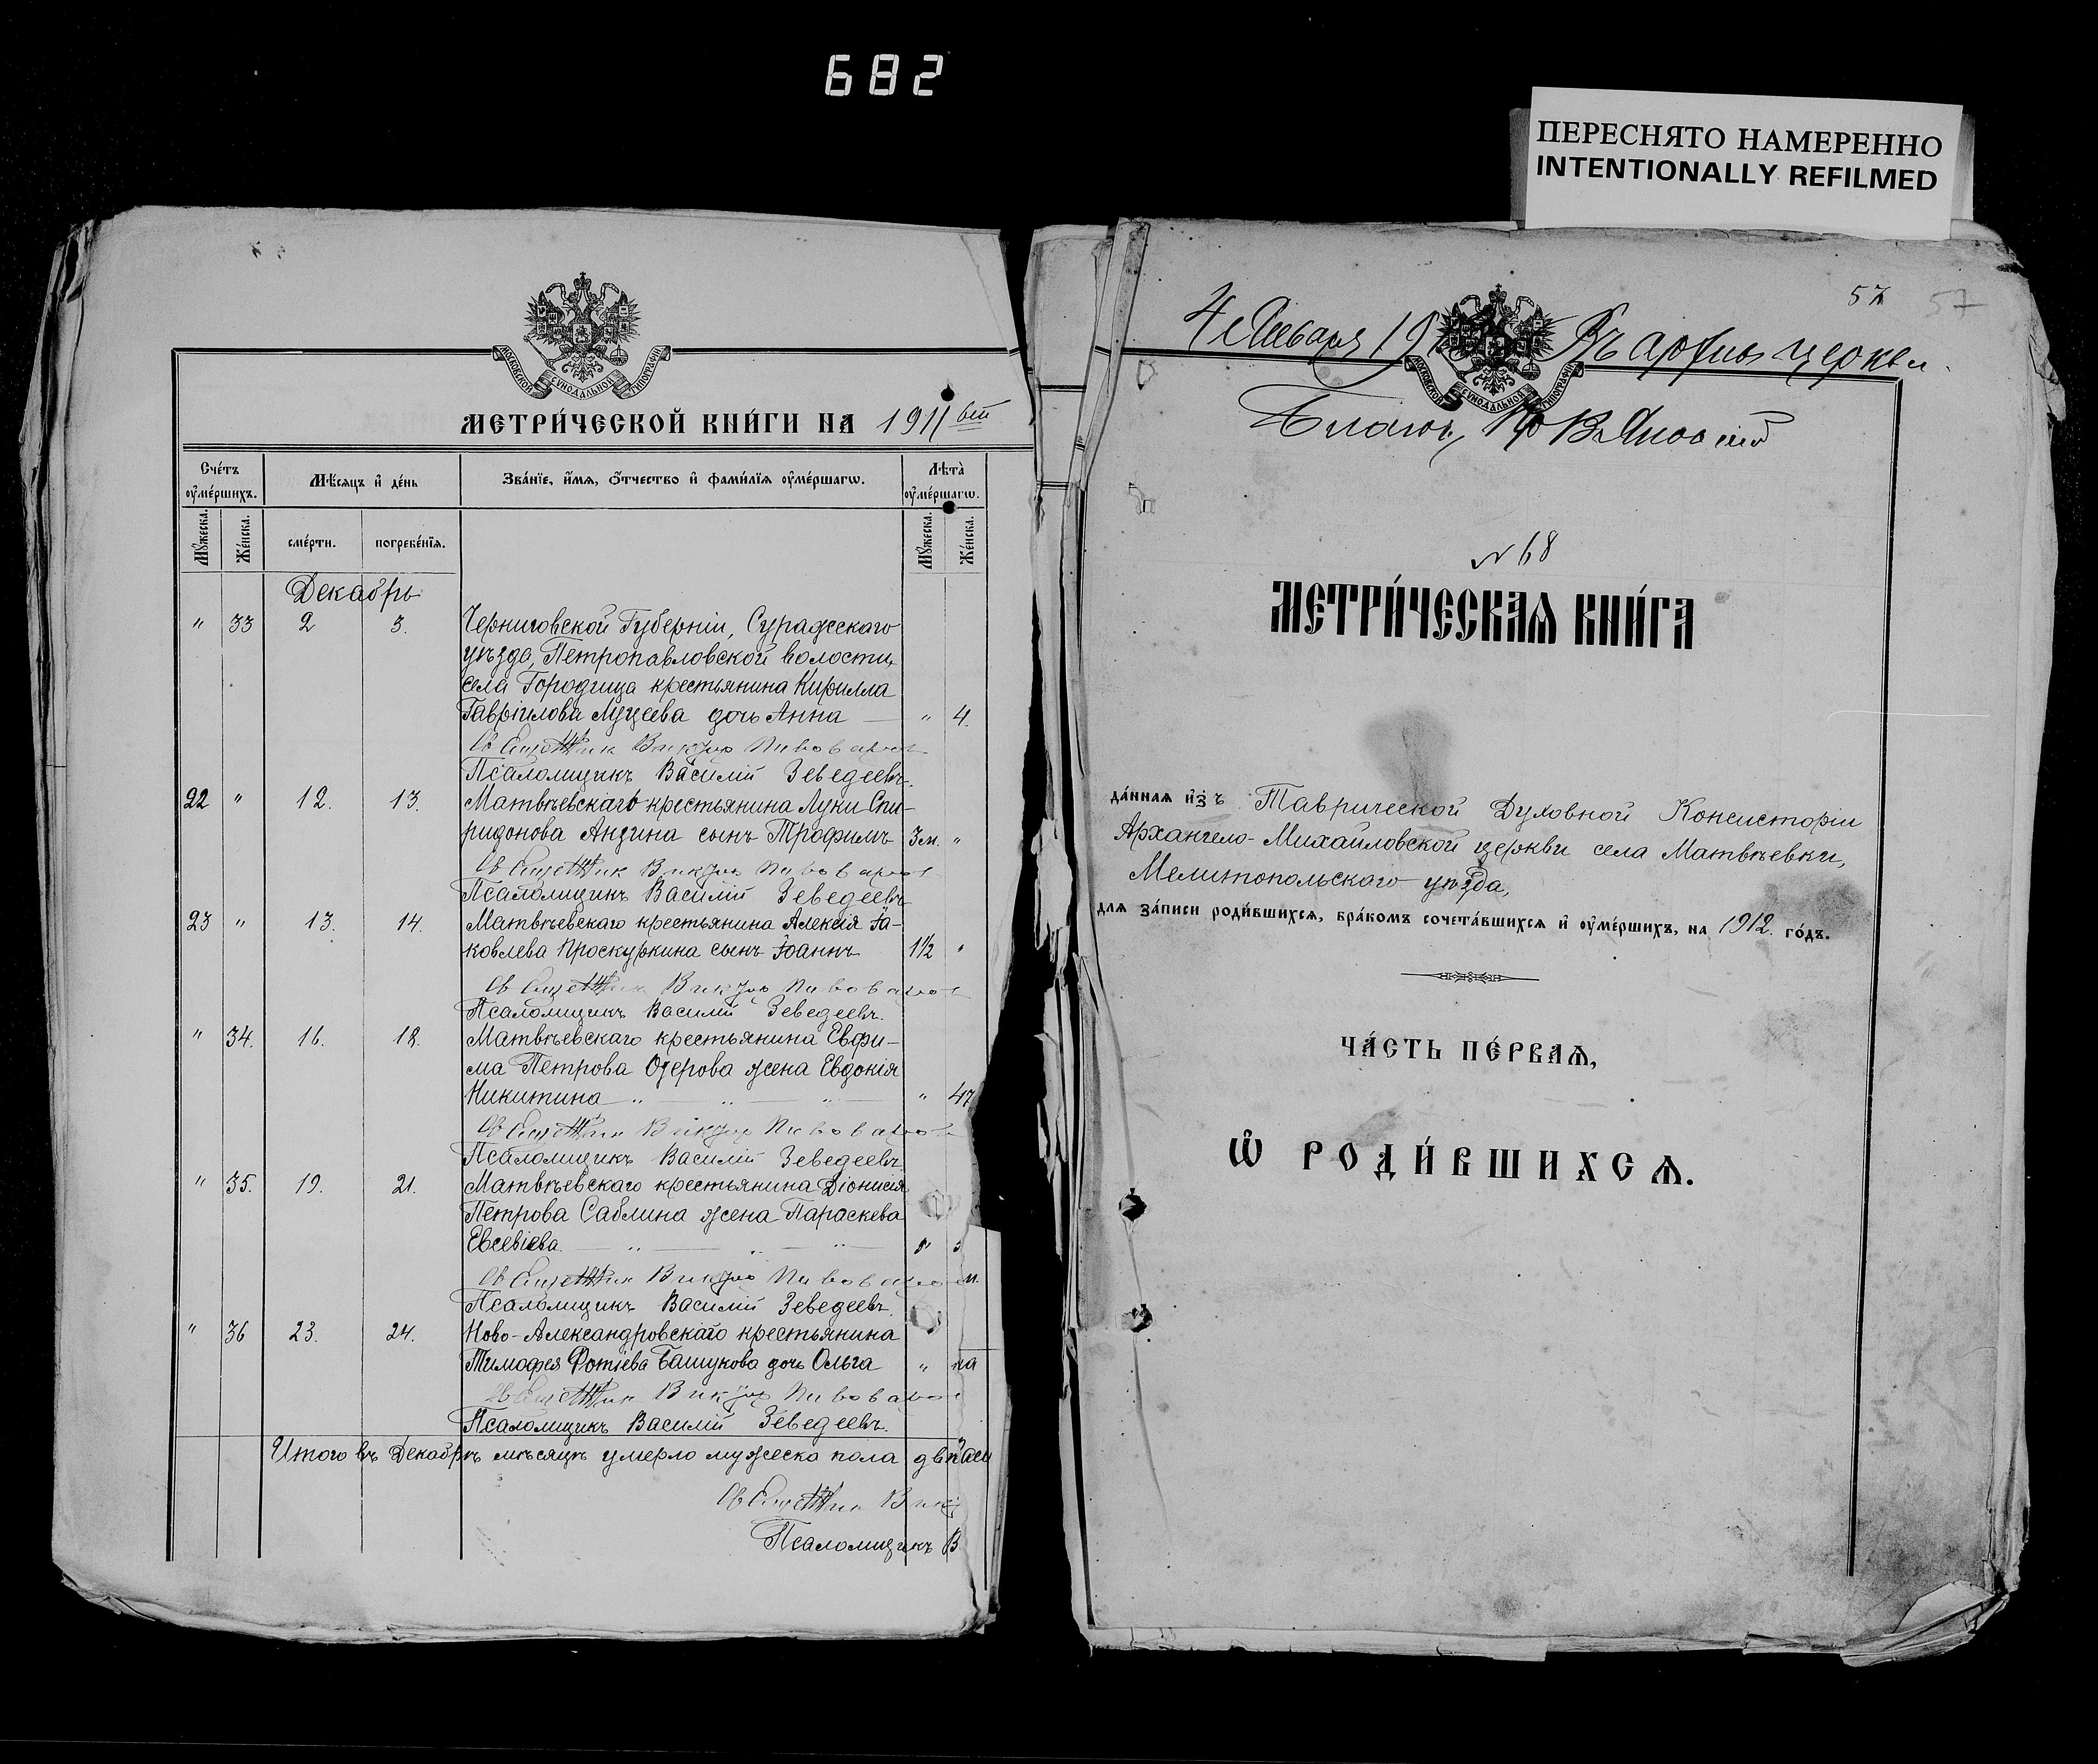 682
ПЕРЕСНЯТО НАМЕРЕННО
INTENTIONALLY REFILMED
МОСКОВСКОЙ СѴНОДАЛЬНОЙ ТИПОГРАФІИ
МЕТРИ́ЧЕСКОЙ КНИ́ГИ НА 1911
Сче́тъ ᲂу҆ме́ршихъ.
Мѣ́сяцъ и҆ де́нь
Зва́нїе, и҆́мѧ, ѻ҆́тчество и҆ фами́лїѧ ᲂу҆ме́ршагѡ.
Лѣта̀ ᲂу҆ме́ршагѡ.
Мꙋ́жеска.
Же́нска.
сме́рти.
погребе́нїѧ.
Мꙋ́жеска.
Же́нска.
Декабрь
" 33 2 3. Черниговской Губерніи, Суражскаго
уѣзда, Петропавловской волости,
села Городища крестьянина Кирилла
Гавріилова Луцева дочь Анна — " 4.
Священник Виктор Пивоваров
Псаломщикъ Василій Зеведеевъ.
22 " 12. 13. Матвѣевскаго крестьянина Луки Спи-
ридонова Андина сынъ Трофимъ 3 м. "
Священник Виктор Пивоваров
Псаломщикъ Василій Зеведеевъ
23 " 13. 14. Матвѣевскаго крестьянина Алексія Іа-
ковлева Проскуркина сынъ Іоаннъ 1½ "
Священник Виктор Пивоваров
Псаломщикъ Василій Зеведеевъ.
" 34. 16. 18. Матвѣевскаго крестьянина Евфи-
ма Петрова Озерова жена Евдокія
Никитина " 47
Священник Виктор Пивоваров
Псаломщикъ Василій Зеведеевъ
" 35. 19. 21. Матвѣевскаго крестьянина Діонисія
Петрова Саблина жена Параскева
Евсевіева "
Священник Виктор Пивоваров
Псаломщикъ Василій Зеведеевъ.
" 36 23. 24. Ново-Александровскаго крестьянина
Тимофея Фотіева Башукова дочь Ольга "
Священник Виктор Пивоваров
Псаломщикъ Василій Зеведеевъ.
Итого въ Декабрѣ мѣсяцѣ умерло мужеска пола
Священник Вик
Псаломщикъ В
57 57
4 Января 19 Въ архивъ церкви.
МОСКОВСКОЙ СѴНОДАЛЬНОЙ ТИПОГРАФІИ
№ 68
МЕТРИ́ЧЕСКАѦ КНИ́ГА
да́ннаѧ и҆зъ Таврической Духовной Консисторіи
Архангело-Михайловской церкви села Матвѣевки,
Мелитопольскаго уѣзда,
длѧ за́писи роди́вшихсѧ, бра́комъ сочета́вшихсѧ и҆ ᲂу҆ме́ршихъ, на 1912. го́дъ.
ЧА́СТЬ ПЕ́РВАѦ,
Ѡ҆ РОДИ́ВШИХСѦ.